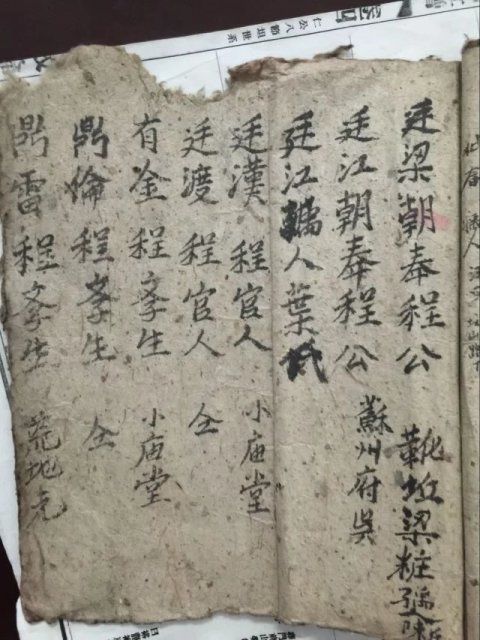 廷梁朝奉程公 靴坵梁粧
廷江朝奉程公 蘇州府吳
廷江孺人葉氏
廷漢程官人 小庙堂
廷渡程官人 仝
有金程孝生 小庙堂
鼎倫程孝生 仝
鼎雷程孝生 荒地
仁公入韜坦世系